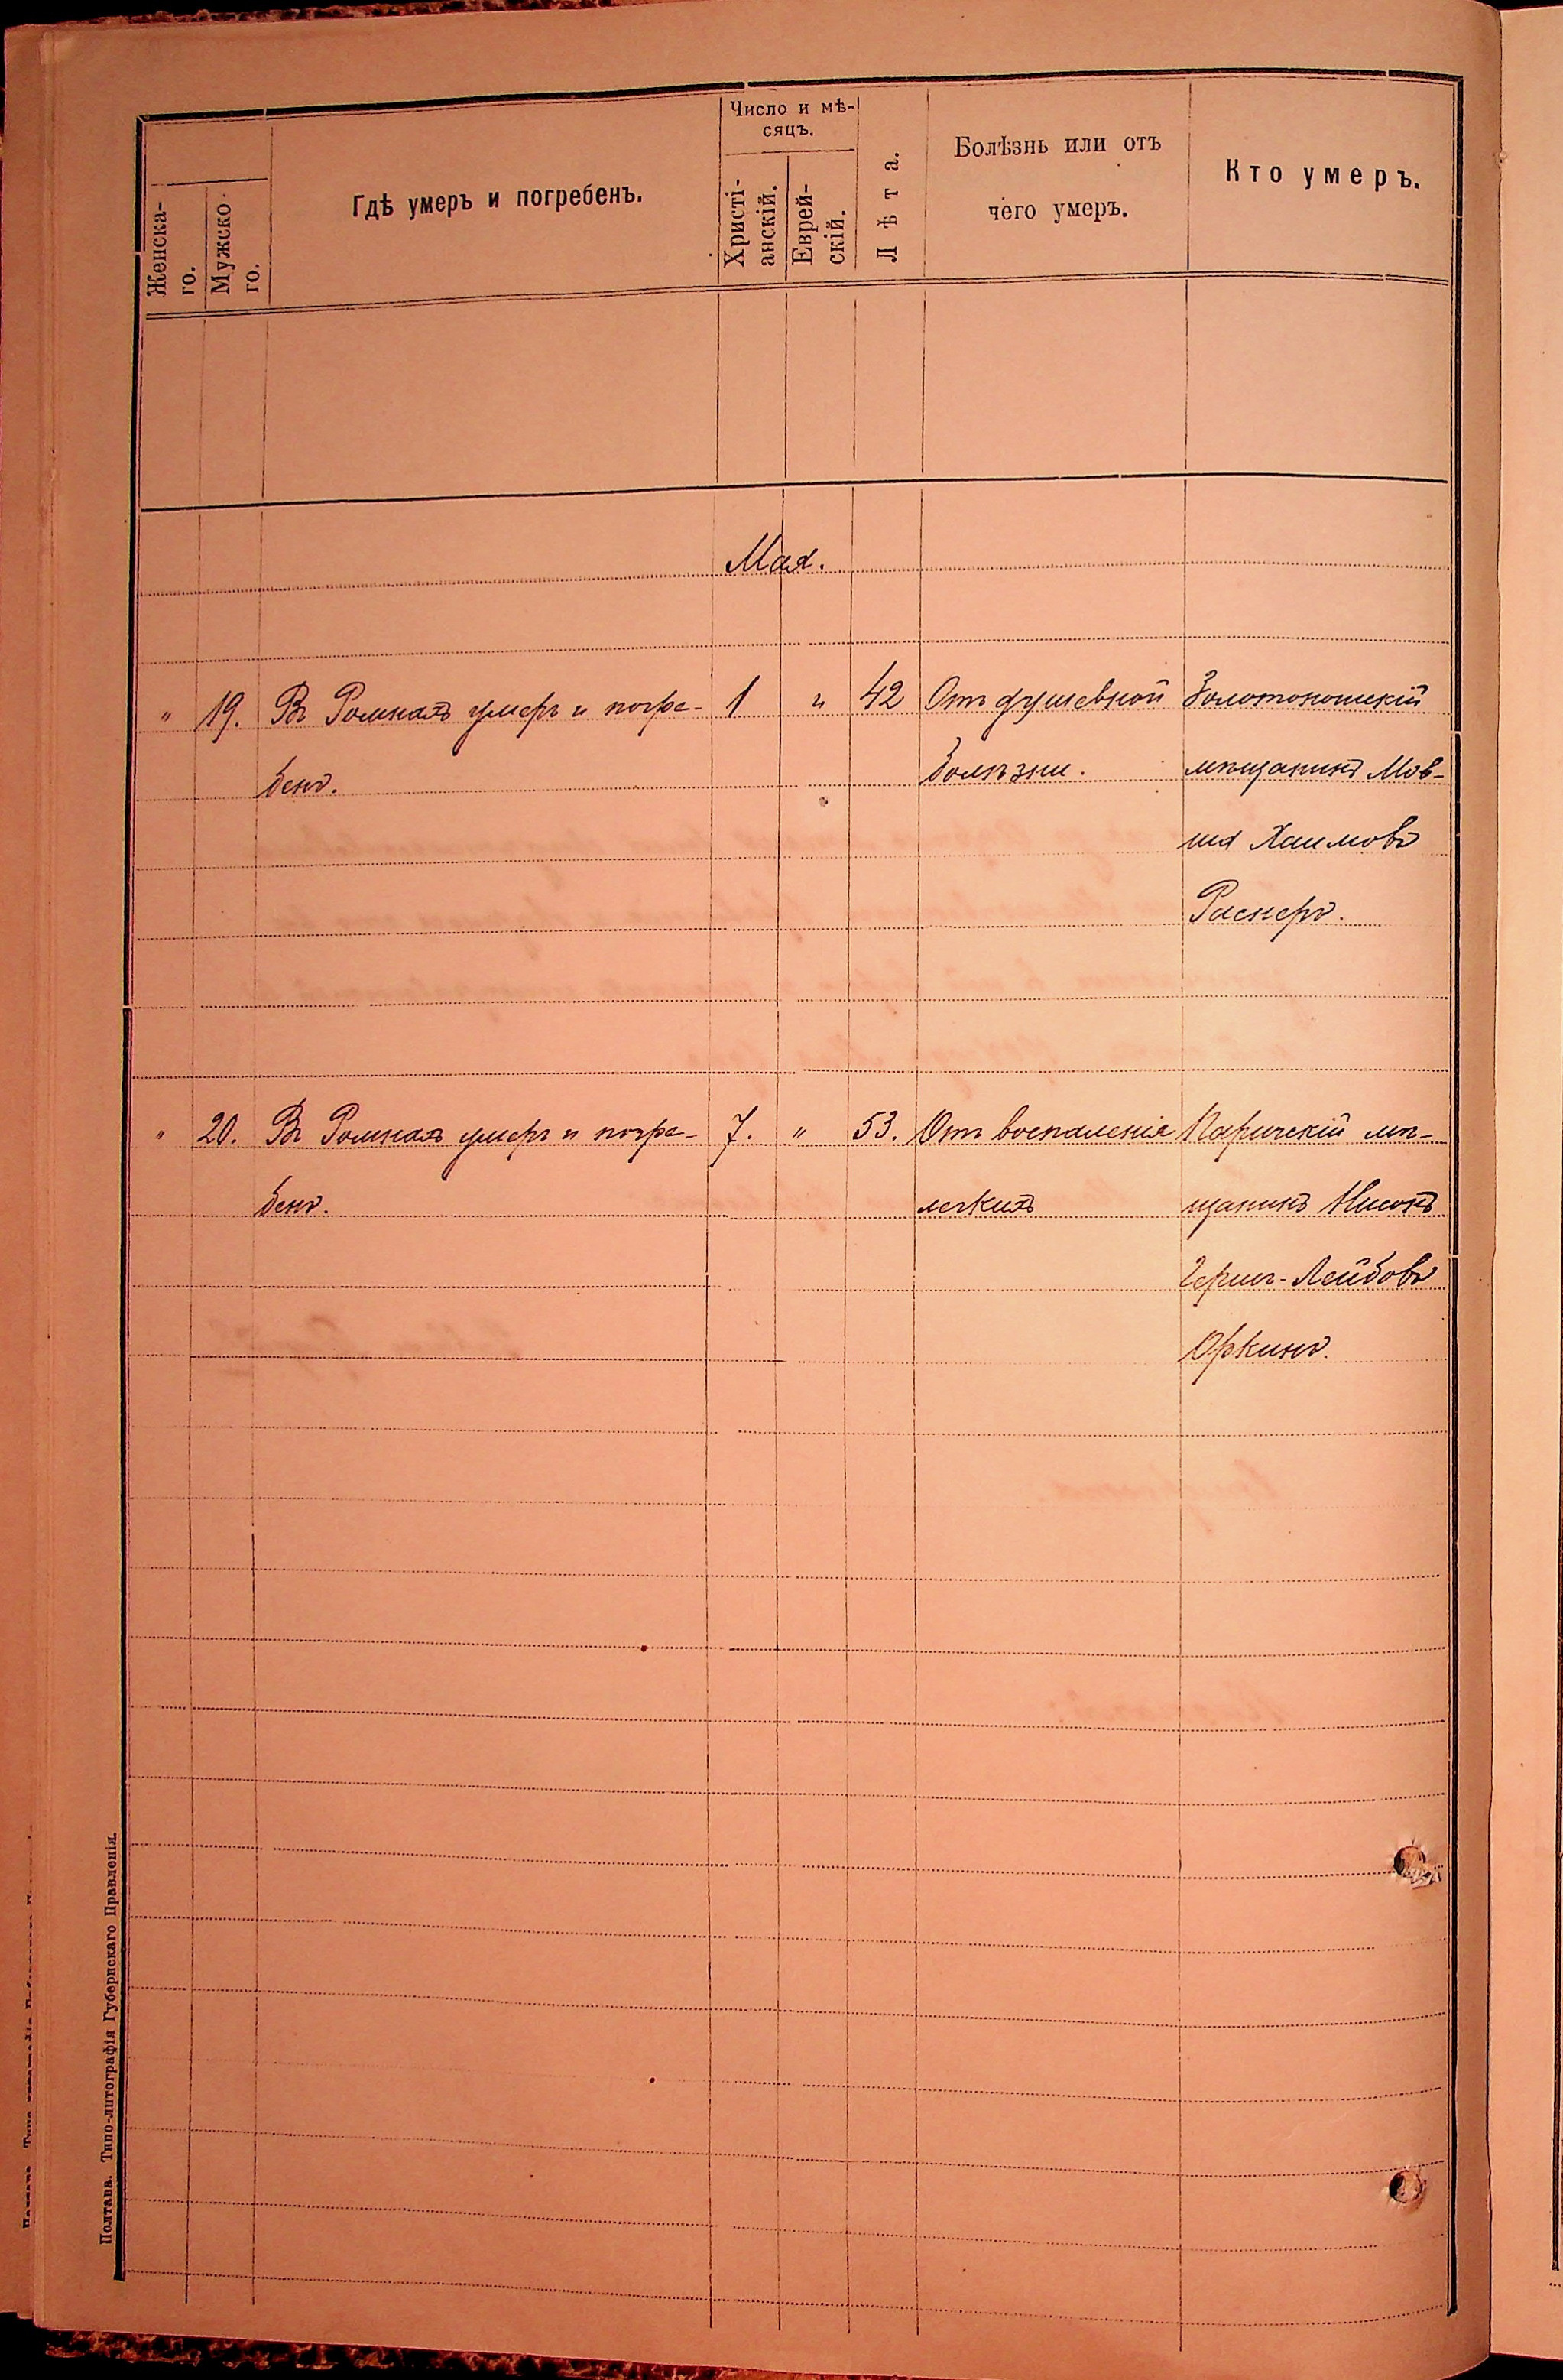 Женска-
го.
Мужско-
го.
Гдѣ умеръ и погребенъ.
Число и мѣ-
сяцъ.
Христі-
анскій.
Еврей-
скій.
Лѣта.
Болѣзнь или отъ
чего умеръ.
Кто умеръ.
Мая.
" 19. Въ Ромнахъ умеръ и погре- 1 " 42 Отъ душевной Золотоношскій
бенъ. болѣзни. мѣщанинъ Мов-
ша Хаимовъ
" 20. Въ Ромнахъ умеръ и погре- 7. " 53. Отъ воспаленія Паричскій мѣ-
бенъ. легкихъ щанинъ Нисонъ
Герш-Лейбовъ
Оркинъ.
Полтава. Типо-литографія Губернскаго Правленія.